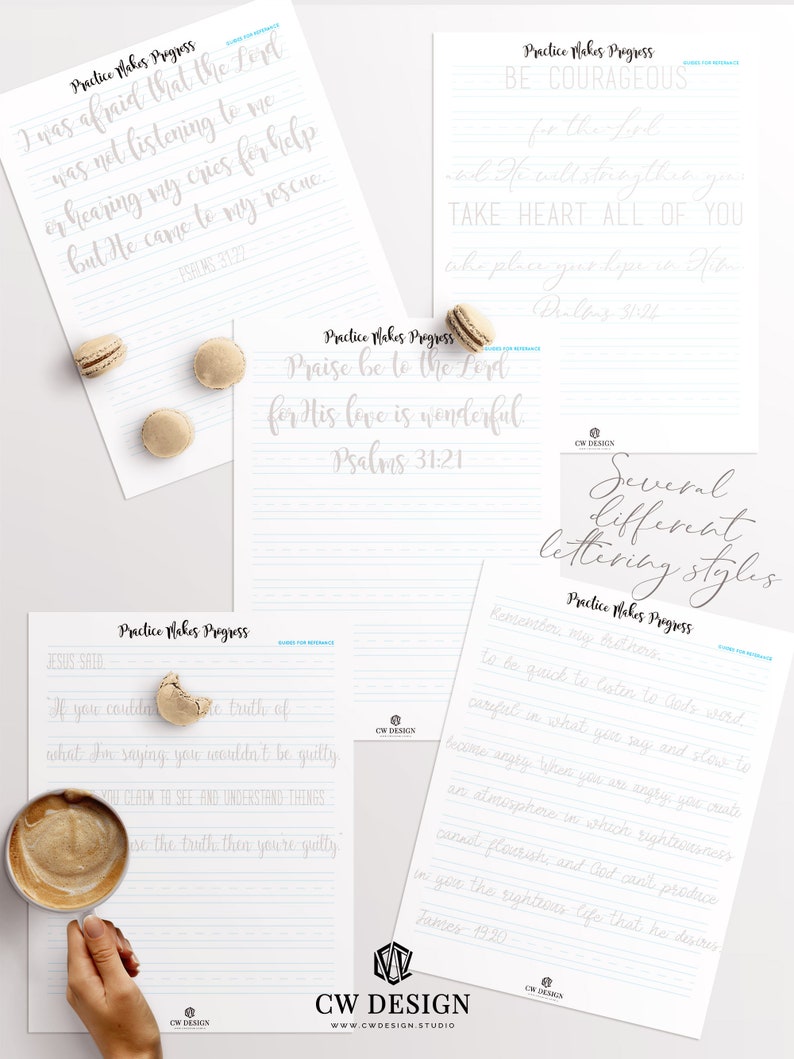 Practice Makes Progress
GUIDES FOR REFERANCE
I was afraid that the Lord
was not listening to me
or hearing my cries for help
but He came to my rescue.
PSALMS 31:22
Practice Makes Progress
GUIDES FOR REFERANCE
BE COURAGEOUS
for the Lord
and He will strengthen you;
TAKE HEART ALL OF YOU
who place your hope in Him.
Psalms 31:24
CW DESIGN
Practice Makes Progress
GUIDES FOR REFERANCE
Praise be to the Lord
for His love is wonderful.
Psalms 31:21
CW DESIGN
Several
different
lettering styles
Practice Makes Progress
GUIDES FOR REFERANCE
JESUS SAID,
"If you couldn't the truth of
what I'm saying you wouldn't be guilty.
YOU CLAIM TO SEE AND UNDERSTAND THINGS
the truth then you're guilty.
CW DESIGN
Practice Makes Progress
GUIDES FOR REFERANCE
Remember, my brothers,
to be quick to listen to God's word
careful in what you say and slow to
become angry. When you are angry, you create
an atmosphere in which righteousness
cannot flourish, and God can't produce
in you the righteous life that he desires.
James 1:9,20
CW DESIGN
CW DESIGN
WWW.CWDESIGN.STUDIO